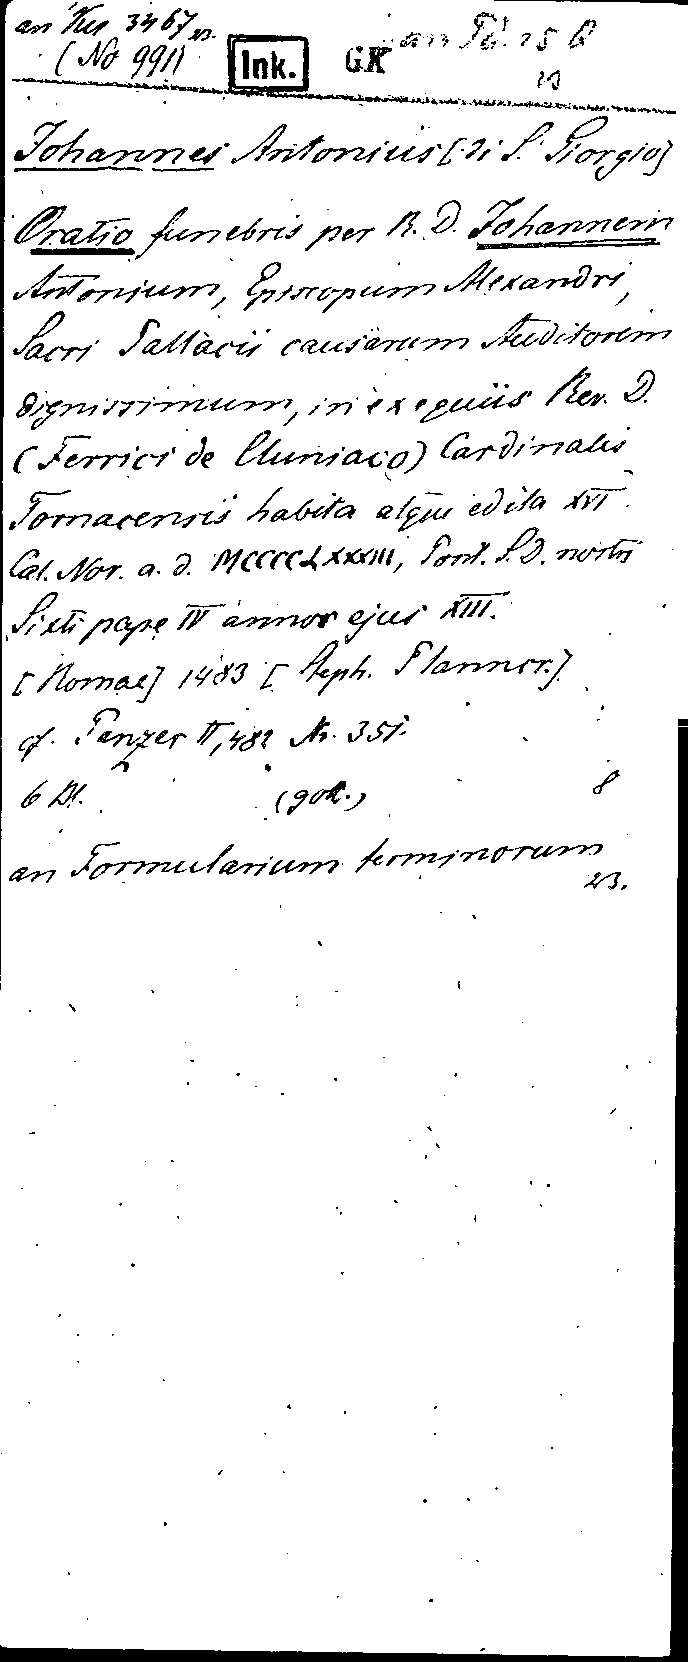 an 3467
(No 991) Ink. GK an
Johannes Antonius [di S. Giorgio]
Oratio funebris per R. D. Johannem
Antonium, Episcopum Alexandri,
Sacri Pallacii causarum Auditorem
dignissimum, in exequiis Rev. D.
(Ferrici de Cluniaco) Cardinalis
Tornacensis habita atque edita XVI
Cal. Nov. a. d. MCCCCLXXXIII, Pont. S. D. nostri
Sixti pape IV annor ejus XIII.
[Romae] 1483 [Steph. Plannck.]
cf. Panzer II, 482 Nr. 351.
6 Bl. (got.) 8
an Formularium terminorum